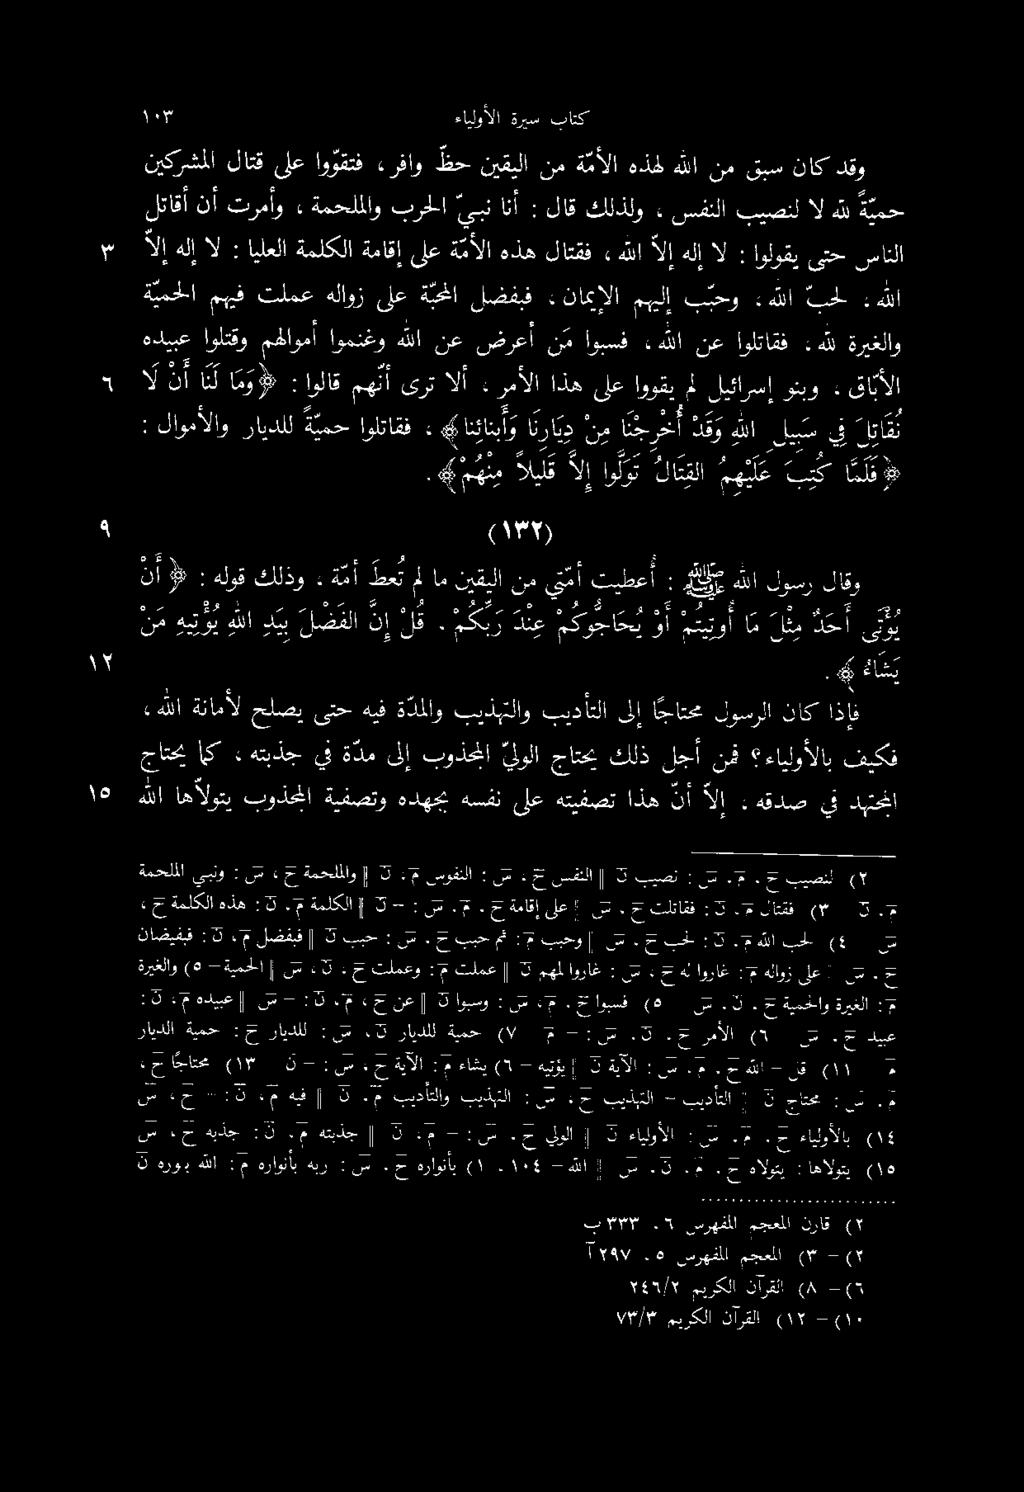 كتاب سيرة الأولياء ١٠٣
وقد كان سبق من الله لهذه الأمّة من اليقين حظّ وافر ، فتقوّوا على قتال المشركين
حميّةً لله لا لنصيب النفس ، ولذلك قال : أنا نبيّ الحرب والملحمة ، وأمرت أن أقاتل
الناس حتى يقولوا : لا إله إلاّ الله ، فقتال هذه الأمّة على إقامة الكلمة العليا : لا إله إلاّ ٣
الله ، لحبّ الله ، وحبّب إليهم الايمان ، فبفضل المحبّة على زواله عملت فيهم الحميّة
والغيرة لله ، فقاتلوا عن الله ، فسبوا مَن أعرض عن الله وغنموا أموالهم وقتلوا عبيده
الأبّاق ، وبنو إسرائيل لم يقووا على هذا الأمر ، ألا ترى أنّهم قالوا : ﴿وَمَا لَنَا أَنْ لَا ٦
نُقَاتِلَ فِي سَبِيلِ اللهِ وَقَدْ أُخْرِجْنَا مِنْ دِيَارِنَا وَأَبنائِنا﴾ ، فقاتلوا حميّةً للديار والأموال :
﴿فَلَمَّا كُتِبَ عَلَيْهِمُ القِتَالُ تَوَلَّوا إِلاَّ قَلِيلاً مِنْهُمْ﴾ .
(١٣٢) ٩
وقال رسول الله ﷺ : أُعطيت أمّتي من اليقين ما لم تُعطَ أمّة ، وذلك قوله : ﴿أَنْ
يُؤْتَى أَحَدٌ مِثْلَ مَا أُوتِيتُمْ أَوْ يُحَاجُّوكُمْ عِنْدَ رَبِّكُمْ . قُلْ إِنَّ الفَضْلَ بِيَدِ اللهِ يُؤْتِيهِ مَنْ
يَشَاءُ﴾ . ١٢
فإذا كان الرسول محتاجًا إلى التأديب والتهذيب والمدّة فيه حتى يصلح لأمانة الله ،
فكيف بالأولياء؟ فمن أجل ذلك يحتاج الوليّ المجذوب إلى مدّة في جذبته ، كما يحتاج
المجتهد في صدقه ، إلاّ أنّ هذا تصفيته على نفسه بجهده وتصفية المجذوب يتولاّها الله ١٥
٢) لنصيب ح . م . س : نصيب ن ‖ النفس ح . س : النفوس م . ن ‖ والملحمة ح ، س : ونبي الملحمة
م . ن ٣) فقتال م . ن : فقاتلت ح . س ‖ على إقامة ح . م . س : – ن ‖ الكلمة م . ن : هذه الكلمة ح ،
س ٤) لحب الله م . ن : لحب ح . س ‖ وحبب م : ثم حبب ح . س : حبب ن ‖ فبفضل م ، ن : فبفيضان
ح . س ‖ على زواله م : غاروا له ح ، س : غاروا لهم ن ‖ عملت م : وعملت ح ، ن ، س ‖ الحمية – ٥) والغيرة
م : الغيرة والحمية ح . ن . س ٥) فسبوا ح . م ، س : وسبوا ن ‖ عن ح ، م ، ن : – س ‖ عبيده م ، ن :
عبيد ح . س ٦) الأمر ح . ن . س : – م ٧) حمية للديار ن ، س : للديار ح : حمية الديار
م ١١) قل – الله ح . م . س : الآية ن ‖ يؤتيه – ٦) يشاء م : الآية ح ، س : – ن ١٣) محتاجًا ح ،
م . س : محتاج ن ‖ التأديب – التهذيب ح ، س : التهذيب والتأديب م . ن ‖ فيه م ، ن : – ح ، س
١٤) بالأولياء ح . م . س : الأولياء ن ‖ الولي ح . س : – م ، ن ‖ جذبته م . ن : جذبه ح ، س
١٥) يتولاها : يتولاه ح . م . ن . س ‖ الله – ١٠٤ . ١) بأنواره ح . س : ربه بأنواره م : الله بوره ن
٢) قارن المعجم المفهرس ٦ . ٣٣٣ ب
٢) – ٣) المعجم المفهرس ٥ . ٢٩٧ آ
٦) – ٨) القرآن الكريم ٢/٢٤٦
١٠) – ١٢) القرآن الكريم ٣/٧٣